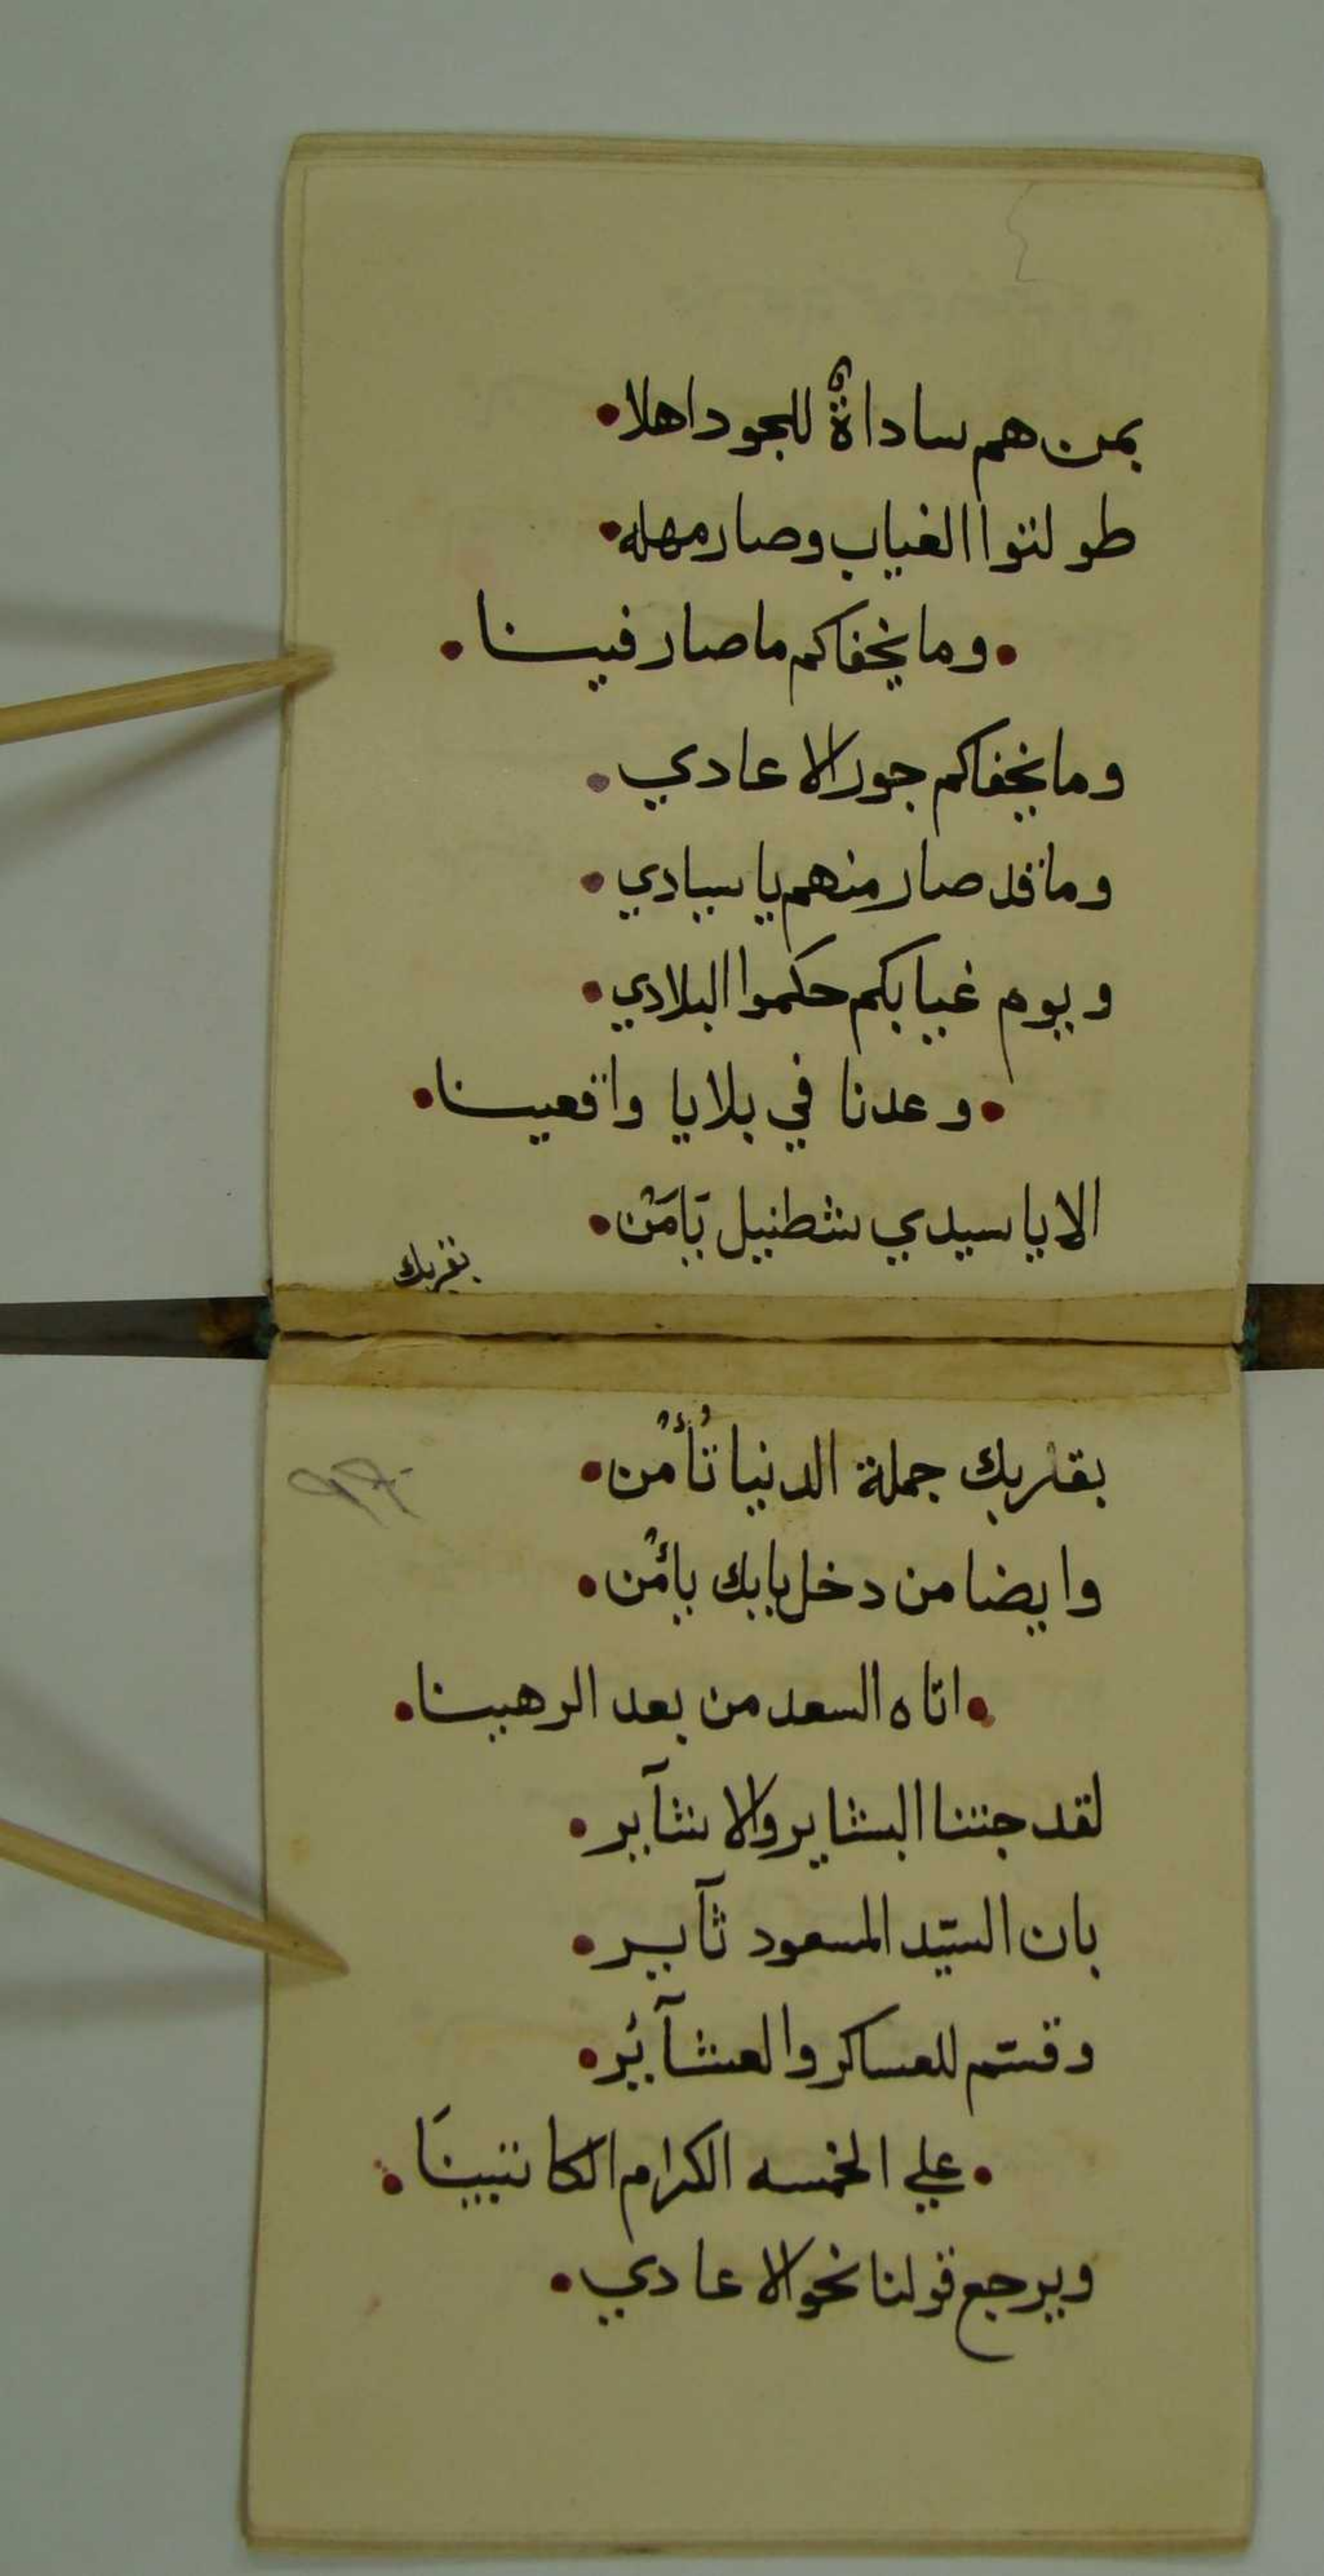 بمن هم ساداةٌ للجود اهلا
طولتوا الغياب وصار مهله
وما يخفاكم ما صار فيينا
وما يخفاكم جور الاعادي
وما قد صار منهم يا سيادي
ويوم غيابكم حكموا البلادي
وعدنا في بلايا واقعيينا
الا يا سيدي شطنيل يَامَنْ
بقربك
بقربك جملة الدنيا تُأْمن
وايضا من دخل بابك يأمن
اتاه السعد من بعد الرهيبنا
لقد جتنا البشاير والا شآير
بان السيّد المسعود ثآير
وقسّم للعساكر والعشآير
علي الخمسه الكرام الكاتبيينَا
ويرجع قولنا نحو الاعادي